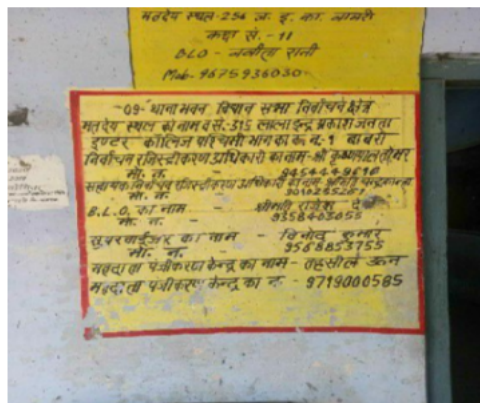 मतदेय स्थल-254 ज. इ. का.
कक्षा सं.-11
BLO - रानी
Mob- 9675936030
09- थाना भवन विधान सभा निर्वाचन क्षेत्र
मतदेय स्थल का नाम व सं.-315 लाला इन्द्र प्रकाश जनता
इण्टर कॉलिज पश्चिमी भाग का क. न.-1 बाबरी
निर्वाचन रजिस्ट्रीकरण अधिकारी का नाम-श्री
मो. न. -
सहायक निर्वाचन रजिस्ट्रीकरण अधिकारी का नाम
मो. न. -
B.L.O. का नाम - श्रीमति राजेश
मो. न. - 9358403055
सुपरवाईजर का नाम - विनोद कुमार
मो. न. - 9568853755
मतदाता पंजीकरण केन्द्र का नाम - तहसील ऊन
मतदाता पंजीकरण केन्द्र का न. - 9719000585